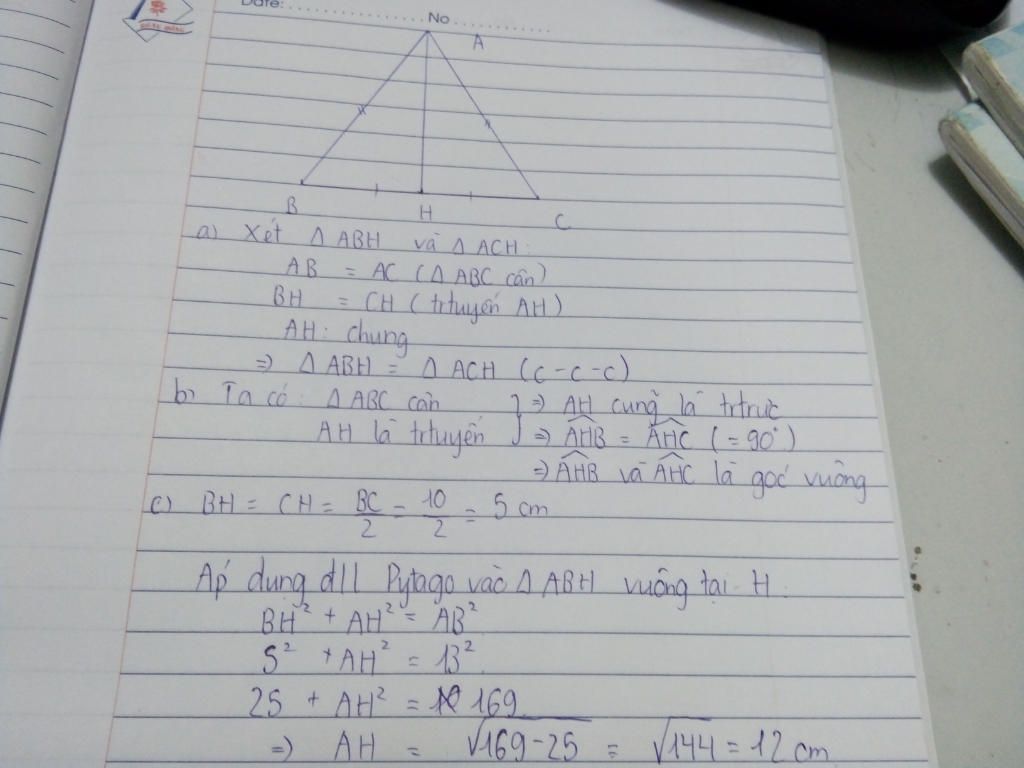 Date: ........................ No ................
A
B H C
a) Xét Δ ABH và Δ ACH:
AB = AC (Δ ABC cân)
BH = CH (trtuyến AH)
AH: chung
=> Δ ABH = Δ ACH (c-c-c)
b) Ta có: Δ ABC cân } => AH cũng là trtrực
AH là trtuyến => AHB = AHC (= 90°)
=> AHB và AHC là góc vuông
c) BH = CH = BC/2 = 10/2 = 5 cm
Áp dụng đll Pytago vào Δ ABH vuông tại H:
BH² + AH² = AB²
5² + AH² = 13²
25 + AH² = 169
=> AH = √169-25 = √144 = 12 cm